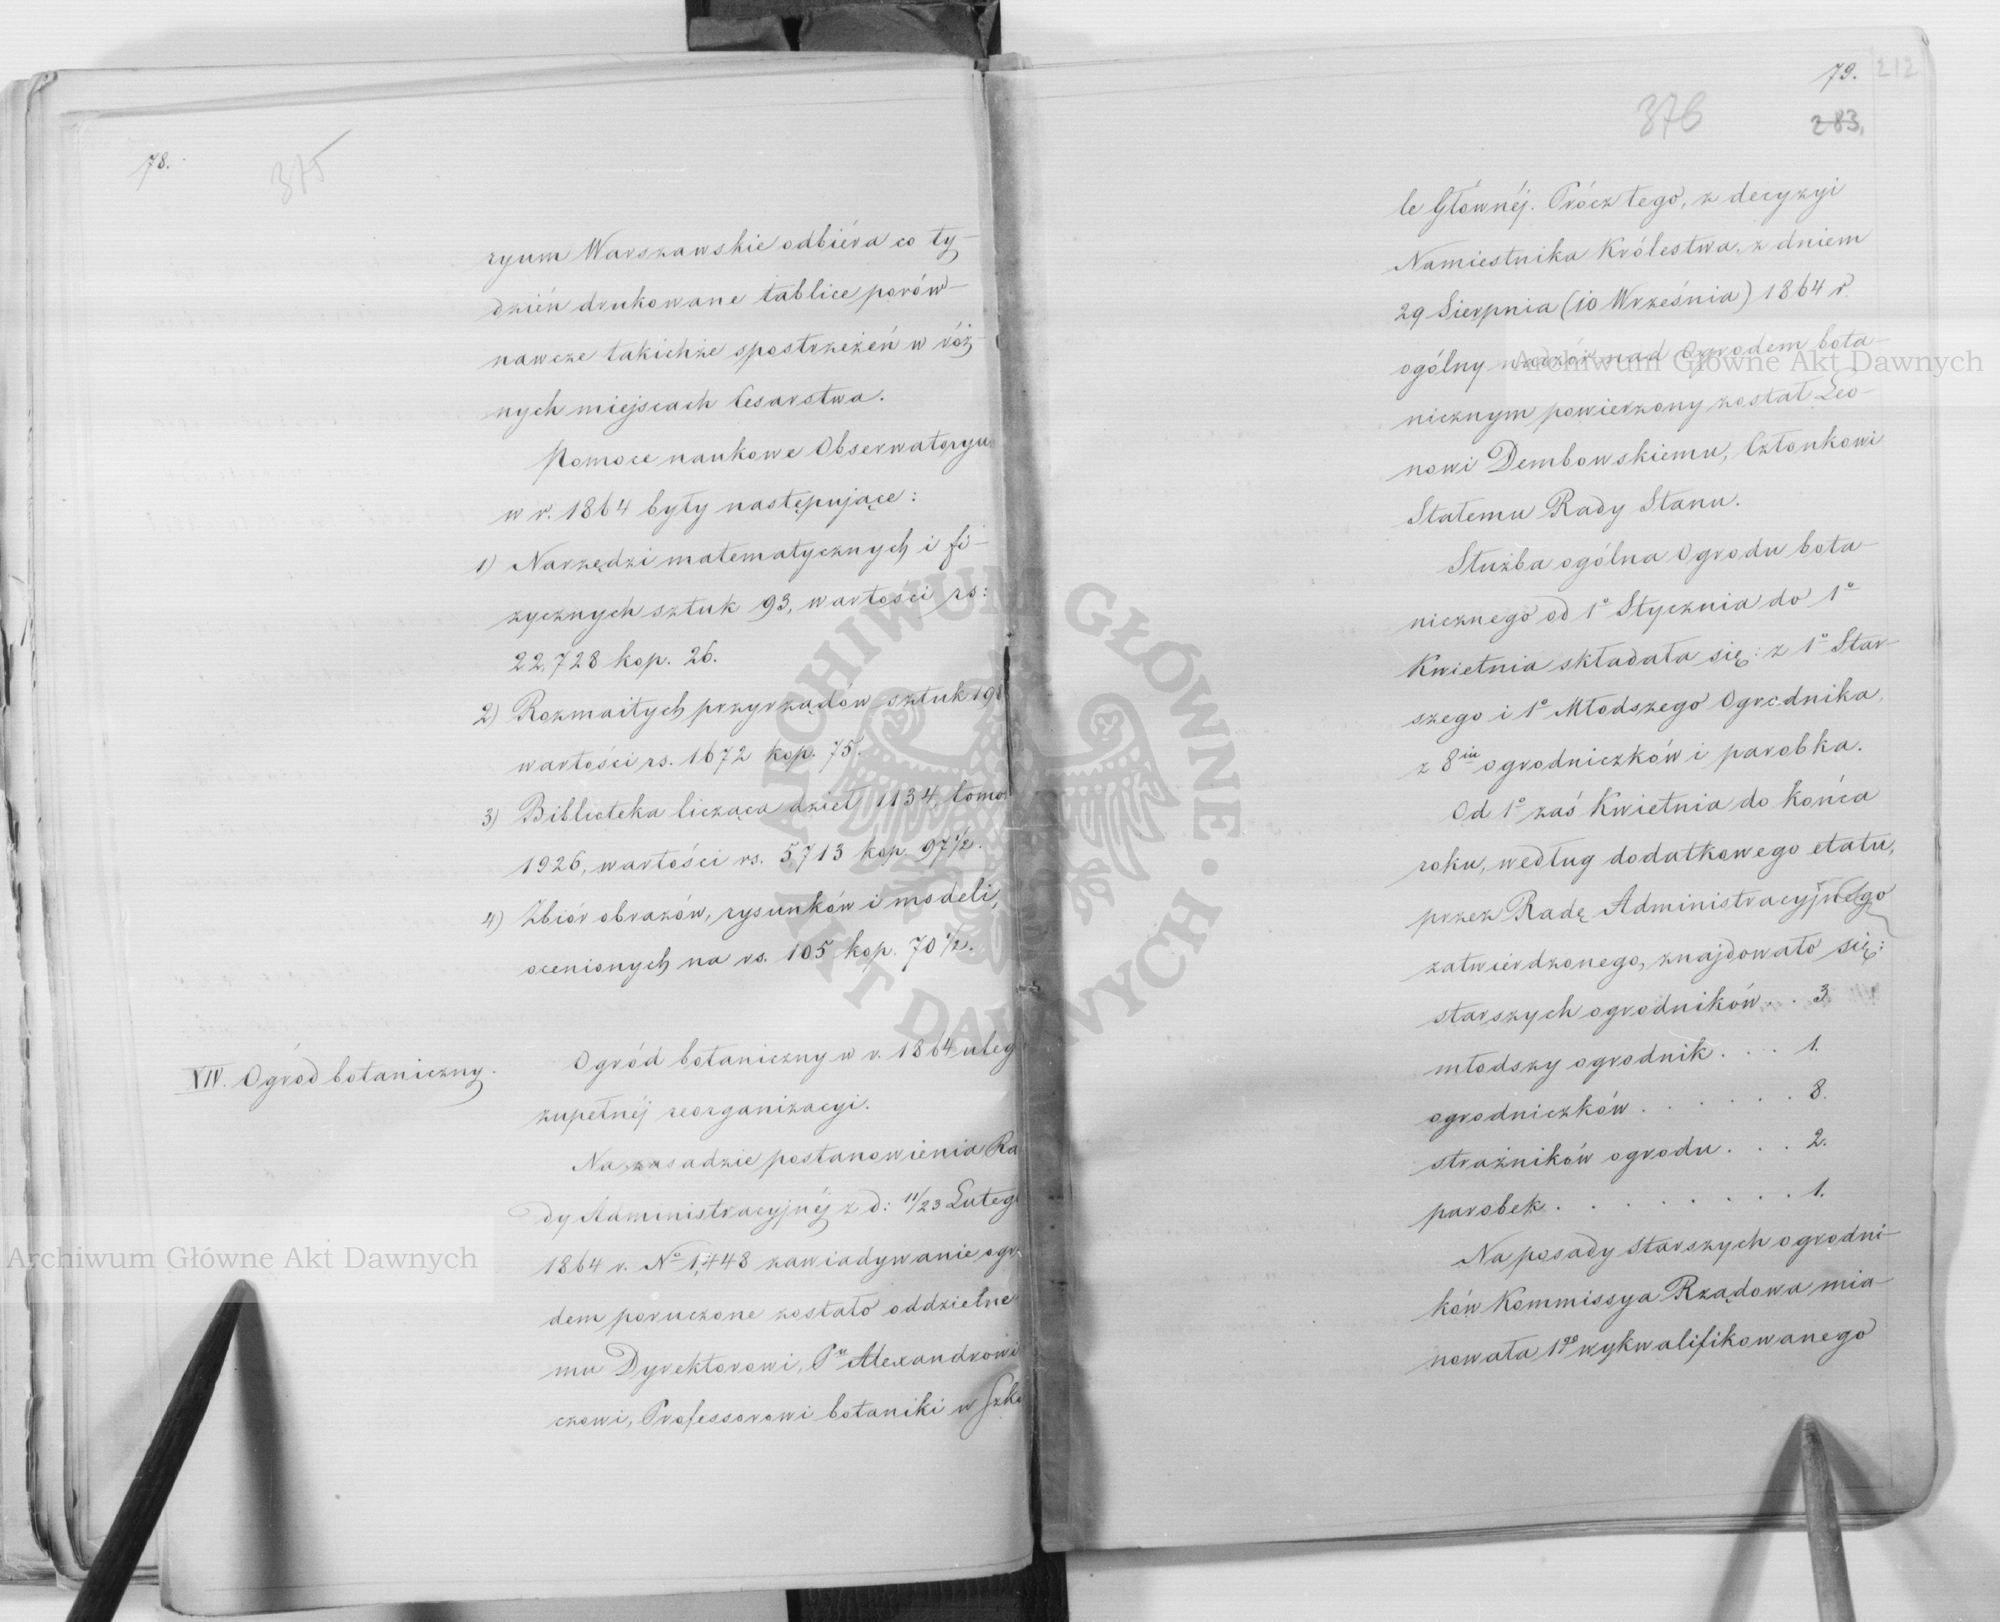 78.
375
ryum Warszawskie odbiéra co ty-
dzień drukowane tablice porów-
nawcze takichże spostrzeżeń w róż-
nych miejscach Cesarstwa.
Pomoce naukowe Obserwatoryu
w r. 1864 były następujące:
1) Narzędzi matematycznych i fi-
zycznych sztuk 93, wartości rs:
22,728 kop. 26.
2) Rozmaitych przyrządów sztuk 19
wartości rs. 1672 kop. 75.
3) Biblioteka licząca dzieł 1134, tomo
1926, wartości rs. 5713 kop. 97½.
4) Zbiór obrazów, rysunków i modeli,
ocenionych na rs. 105 kop. 70½.
XIV. Ogród botaniczny.
Ogród botaniczny w r. 1864 uleg
zupełnéj reorganizacyi.
Na zasadzie postanowienia Ra
dy Administracyjnéj z d: 11/23 Luteg
1864 r. Nº 1,448 zawiadywanie ogr
dem poruczone zostało oddzielne
mu Dyrektorowi, Pu Alexandrowi
czowi, Professorowi botaniki w Szko
79. 212
376 283,
le Głównéj. Prócz tego, z decyzyi
Namiestnika Królestwa, z dniem
29 Sierpnia (10 Września) 1864 r.
ogólny nadzór nad Ogrodem bota-
nicznym powierzony został Leo-
nowi Dembowskiemu, Członkowi
Stałemu Rady Stanu.
Służba ogólna Ogrodu bota-
nicznego od 1º Stycznia do 1º
Kwietnia składała się: z 1º Star-
szego i 1º Młodszego Ogrodnika,
z 8iu ogrodniczków i parobka.
Od 1º zaś Kwietnia do końca
roku, według dodatkowego etatu,
przez Radę Administracyjną
zatwierdzonego, znajdowało się:
starszych ogrodników . . 3
młodszy ogrodnik . . . 1.
ogrodniczków . . . . . . 8.
strażników ogrodu . . . 2.
parobek . . . . . . . . 1.
Na posady starszych ogrodni-
ków Kommissya Rządowa mia-
nowała 1go wykwalifikowanego
Archiwum Główne Akt Dawnych
Archiwum Główne Akt Dawnych
ARCHIWUM GŁÓWNE · AKT DAWNYCH ·